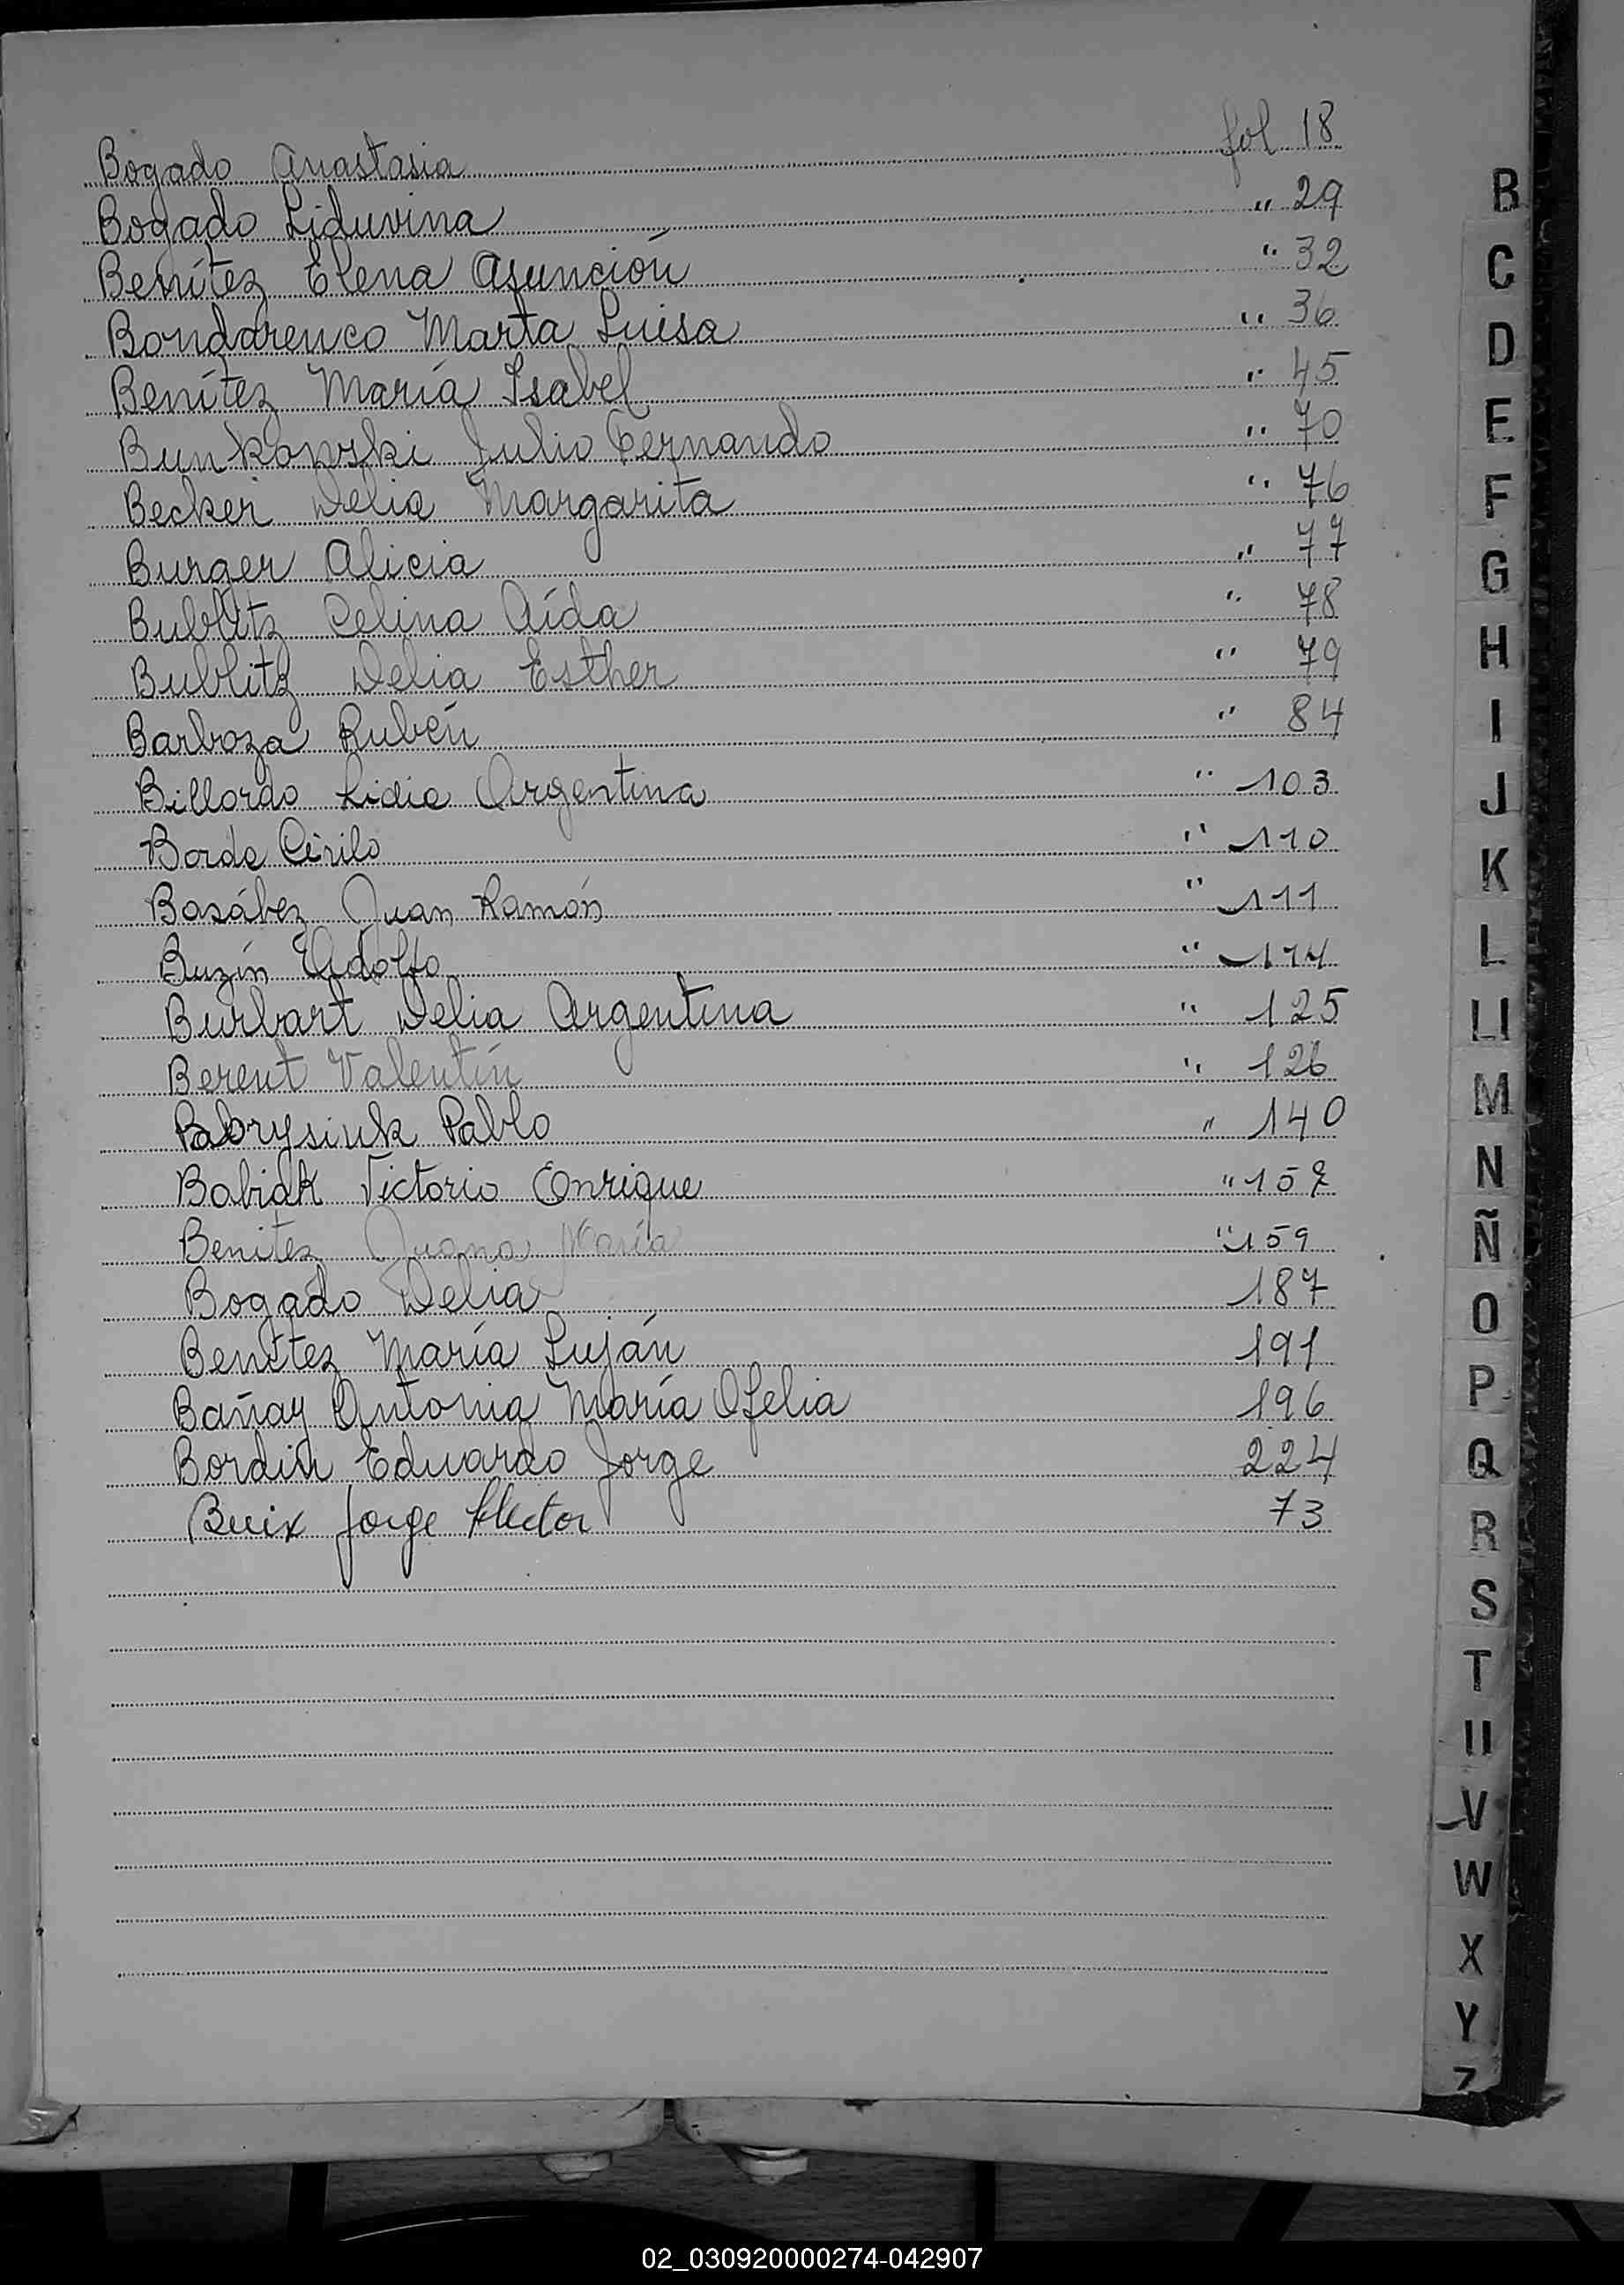 Bogado Anastasia fol 18
Bogado Liduvina " 29
Benítez Elena Asunción " 32
Bondarenco Marta Luisa " 36
Benítez María Isabel " 45
Bunkowski Julio Fernando " 70
Becker Delia Margarita " 76
Burger Alicia " 77
Bublitz Celina Aída " 78
Bublitz Delia Esther " 79
Barboza Rubén " 84
Billordo Lidia Argentina " 103
Borda Cirilo " 110
Basábez Juan Ramón " 111
Buzín Adolfo " 114
Burbart Delia Argentina " 125
Berent Valentín " 126
Pablo " 140
Babiak Victorio Enrique " 157
Benitez Juana María " 159
Bogado Delia 187
Benítez María Luján 191
Bañay Antonia María Ofelia 196
Bordin Eduardo Jorge 224
Buix Jorge Héctor 73
B
C
D
E
F
G
H
I
J
K
L
Ll
M
N
Ñ
O
P
Q
R
S
T
U
V
W
X
Y
Z
02_030920000274-042907